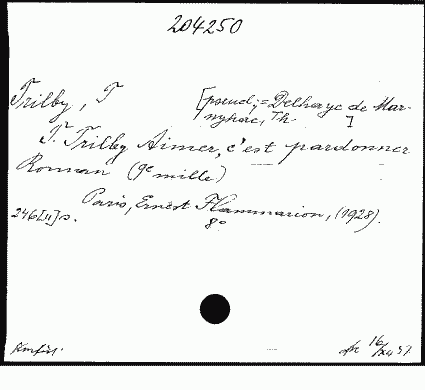 204250
Trilby, T [pseud; = Delhaye de Mar-
nyhac, Th. ]
T. Trilby Aimer, c'est pardonner
Roman (9e mille)
Paris, Ernest Flammarion, (1928).
246[II] s. 8°
16/